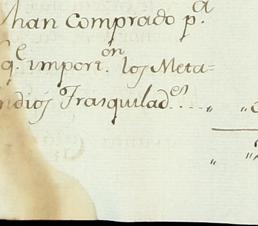 han Comprado p.ᵃ
q.ᵉ import.ᵒⁿ los Meta=
ndios Trasquilad.ᵉˢ